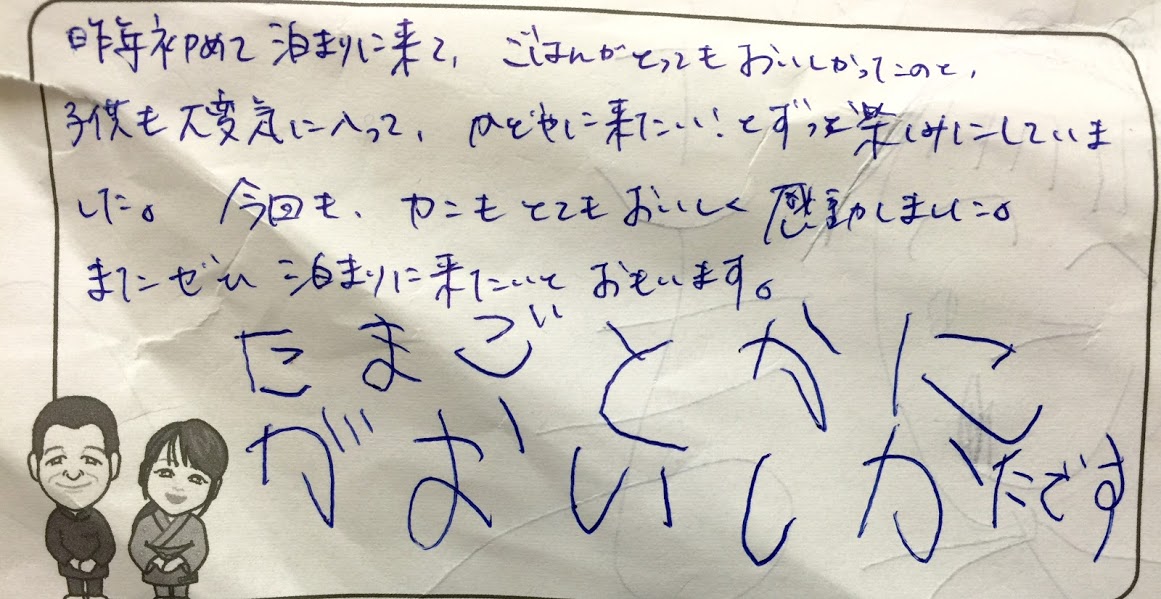 昨年初めて泊まりに来て、ごはんがとってもおいしかったのと、
子供も大変気に入って、かどやに来たい！とずっと楽しみにしていま
した。今回も、カニもとてもおいしく感動しました。
またぜひ泊まりに来たいとおもいます。
たまごとかに
がおいしかたです